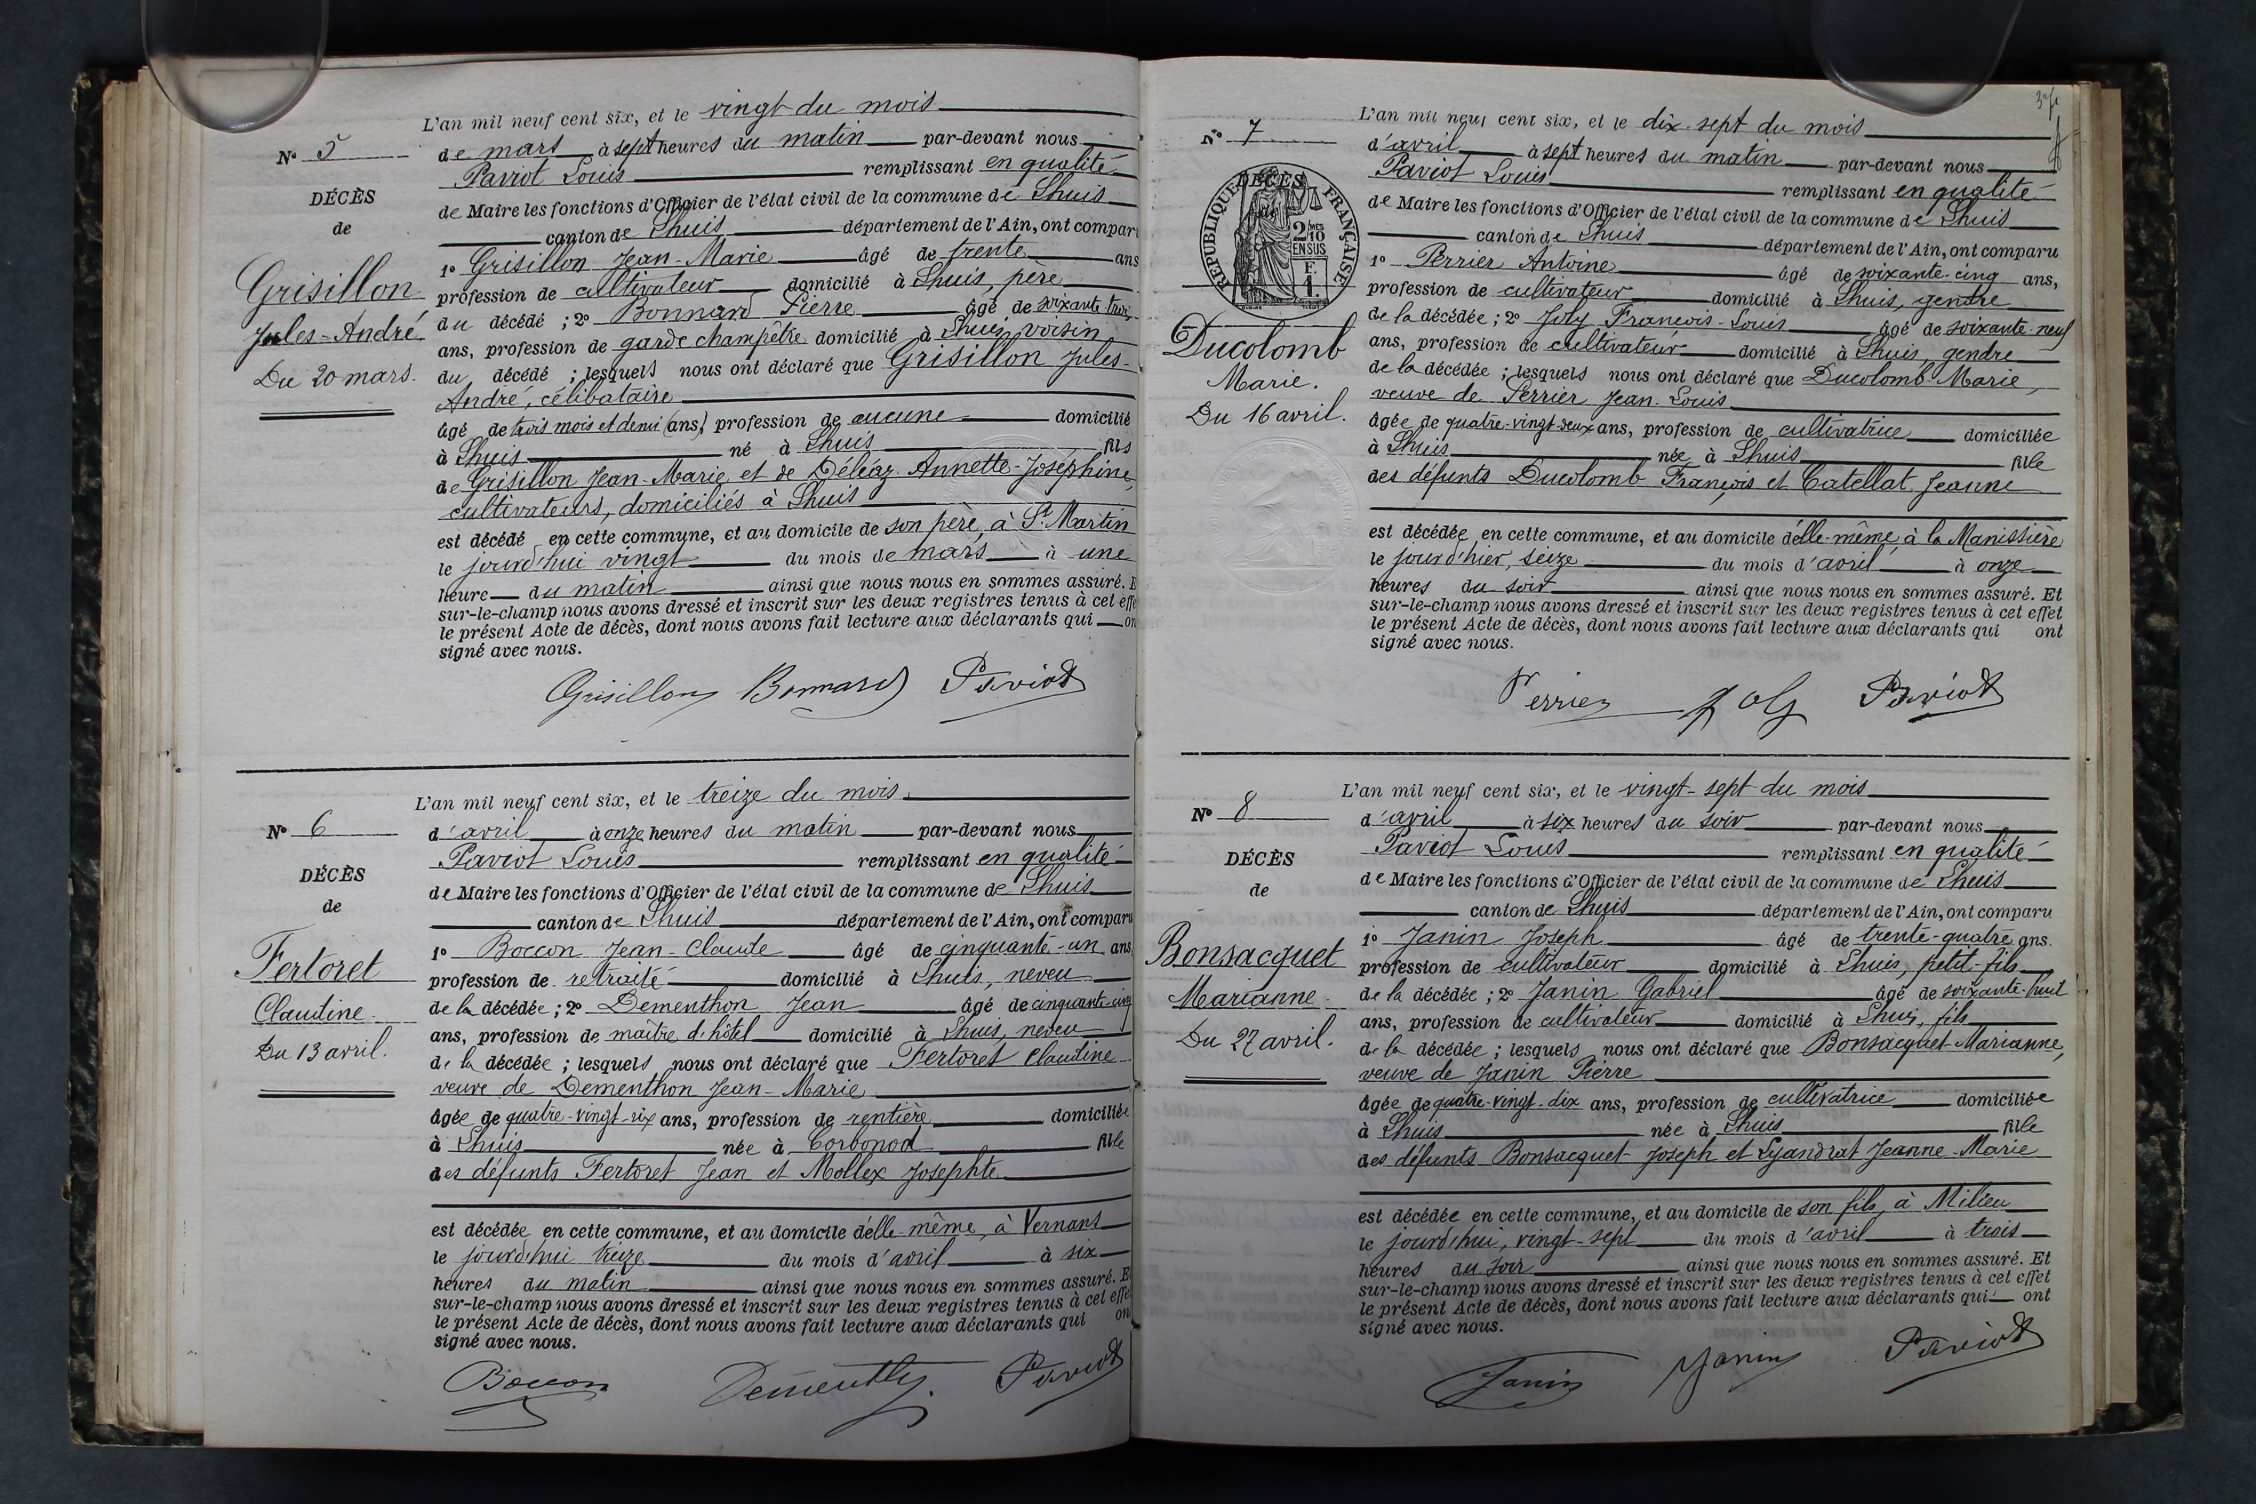 N° 5
DÉCÈS
de
Grisillon
Jules-André
Du 20 mars.
L'an mil neuf cent six, et le vingt du mois
de mars à sept heures du matin par-devant nous
Paviot Louis remplissant en qualité
de Maire les fonctions d'Officier de l'état civil de la commune de Lhuis
canton de Lhuis département de l'Ain, ont compar
1° Grisillon Jean-Marie âgé de trente ans
profession de cultivateur domicilié à Lhuis, père
du décédé ; 2° Bonnard Pierre âgé de soixante-trois
ans, profession de garde champêtre domicilié à Lhuis, voisin
du décédé ; lesquels nous ont déclaré que Grisillon Jules-
André, célibataire
âgé de trois mois et demi (ans) profession de aucune domicilié
à Lhuis né à Lhuis fils
de Grisillon Jean-Marie et de Déléaz Annette-Joséphine,
cultivateurs, domiciliés à Lhuis
est décédé en cette commune, et au domicile de son père, à St Martin
le jourd'hui vingt du mois de mars à une
heure du matin ainsi que nous nous en sommes assuré. E
sur-le-champ nous avons dressé et inscrit sur les deux registres tenus à cet effe
le présent Acte de décès, dont nous avons fait lecture aux déclarants qui on
signé avec nous.
Grisillon Bonnard Paviot
N° 6
DÉCÈS
de
Fertoret
Claudine
Du 13 avril.
L'an mil neuf cent six, et le treize du mois
d'avril à onze heures du matin par-devant nous
Paviot Louis remplissant en qualité
de Maire les fonctions d'Officier de l'état civil de la commune de Lhuis
canton de Lhuis département de l'Ain, ont comparu
1° Boccon Jean-Claude âgé de cinquante-un ans
profession de retraité domicilié à Lhuis, neveu
de la décédée ; 2° Dementhon Jean âgé de cinquante-cinq
ans, profession de maître d'hôtel domicilié à Lhuis, neveu
de la décédée ; lesquels nous ont déclaré que Fertoret Claudine
veuve de Dementhon Jean-Marie
âgée de quatre-vingt-six ans, profession de rentière domiciliée
à Lhuis née à Corbonod fille
des défunts Fertoret Jean et Mollex Josephte
est décédée en cette commune, et au domicile d'elle-même, à Vernans
le jourd'hui treize du mois d'avril à six
heures du matin ainsi que nous nous en sommes assuré. E
sur-le-champ nous avons dressé et inscrit sur les deux registres tenus à cet effe
le présent Acte de décès, dont nous avons fait lecture aux déclarants qui on
signé avec nous.
Boccon Dementhon Paviot
N° 7
RÉPUBLIQUE FRANÇAISE
DÉCÈS
de
2/10 EN SUS
F. 1.
Ducolomb
Marie.
Du 16 avril.
L'an mil neuf cent six, et le dix-sept du mois
d'avril à sept heures du matin par-devant nous
Paviot Louis remplissant en qualité
de Maire les fonctions d'Officier de l'état civil de la commune de Lhuis
canton de Lhuis département de l'Ain, ont comparu
1° Perrier Antoine âgé de soixante-cinq ans,
profession de cultivateur domicilié à Lhuis, gendre
de la décédée ; 2° Joly François-Louis âgé de soixante-neuf
ans, profession de cultivateur domicilié à Lhuis, gendre
de la décédée ; lesquels nous ont déclaré que Ducolomb Marie,
veuve de Perrier Jean-Louis
âgée de quatre-vingt-deux ans, profession de cultivatrice domiciliée
à Lhuis née à Lhuis fille
des défunts Ducolomb François et Catellat Jeanne
est décédée en cette commune, et au domicile d'elle-même, à la Manissière
le jour d'hier, seize du mois d'avril à onze
heures du soir ainsi que nous nous en sommes assuré. Et
sur-le-champ nous avons dressé et inscrit sur les deux registres tenus à cet effet
le présent Acte de décès, dont nous avons fait lecture aux déclarants qui ont
signé avec nous.
Perrier Joly Paviot
N° 8
DÉCÈS
de
Bonsacquet
Marianne
Du 27 avril.
L'an mil neuf cent six, et le vingt-sept du mois
d'avril à six heures du soir par-devant nous
Paviot Louis remplissant en qualité
de Maire les fonctions d'Officier de l'état civil de la commune de Lhuis
canton de Lhuis département de l'Ain, ont comparu
1° Janin Joseph âgé de trente-quatre ans.
profession de cultivateur domicilié à Lhuis, petit-fils
de la décédée ; 2° Janin Gabriel âgé de soixante-huit
ans, profession de cultivateur domicilié à Lhuis, fils
de la décédée ; lesquels nous ont déclaré que Bonsacquet Marianne,
veuve de Janin Pierre
âgée de quatre-vingt-dix ans, profession de cultivatrice domiciliée
à Lhuis née à Lhuis fille
des défunts Bonsacquet Joseph et Lyandrat Jeanne-Marie
est décédée en cette commune, et au domicile de son fils, à Milieu
le jourd'hui, vingt-sept du mois d'avril à trois
heures du soir ainsi que nous nous en sommes assuré. Et
sur-le-champ nous avons dressé et inscrit sur les deux registres tenus à cet effet
le présent Acte de décès, dont nous avons fait lecture aux déclarants qui ont
signé avec nous.
Janin Janin Paviot